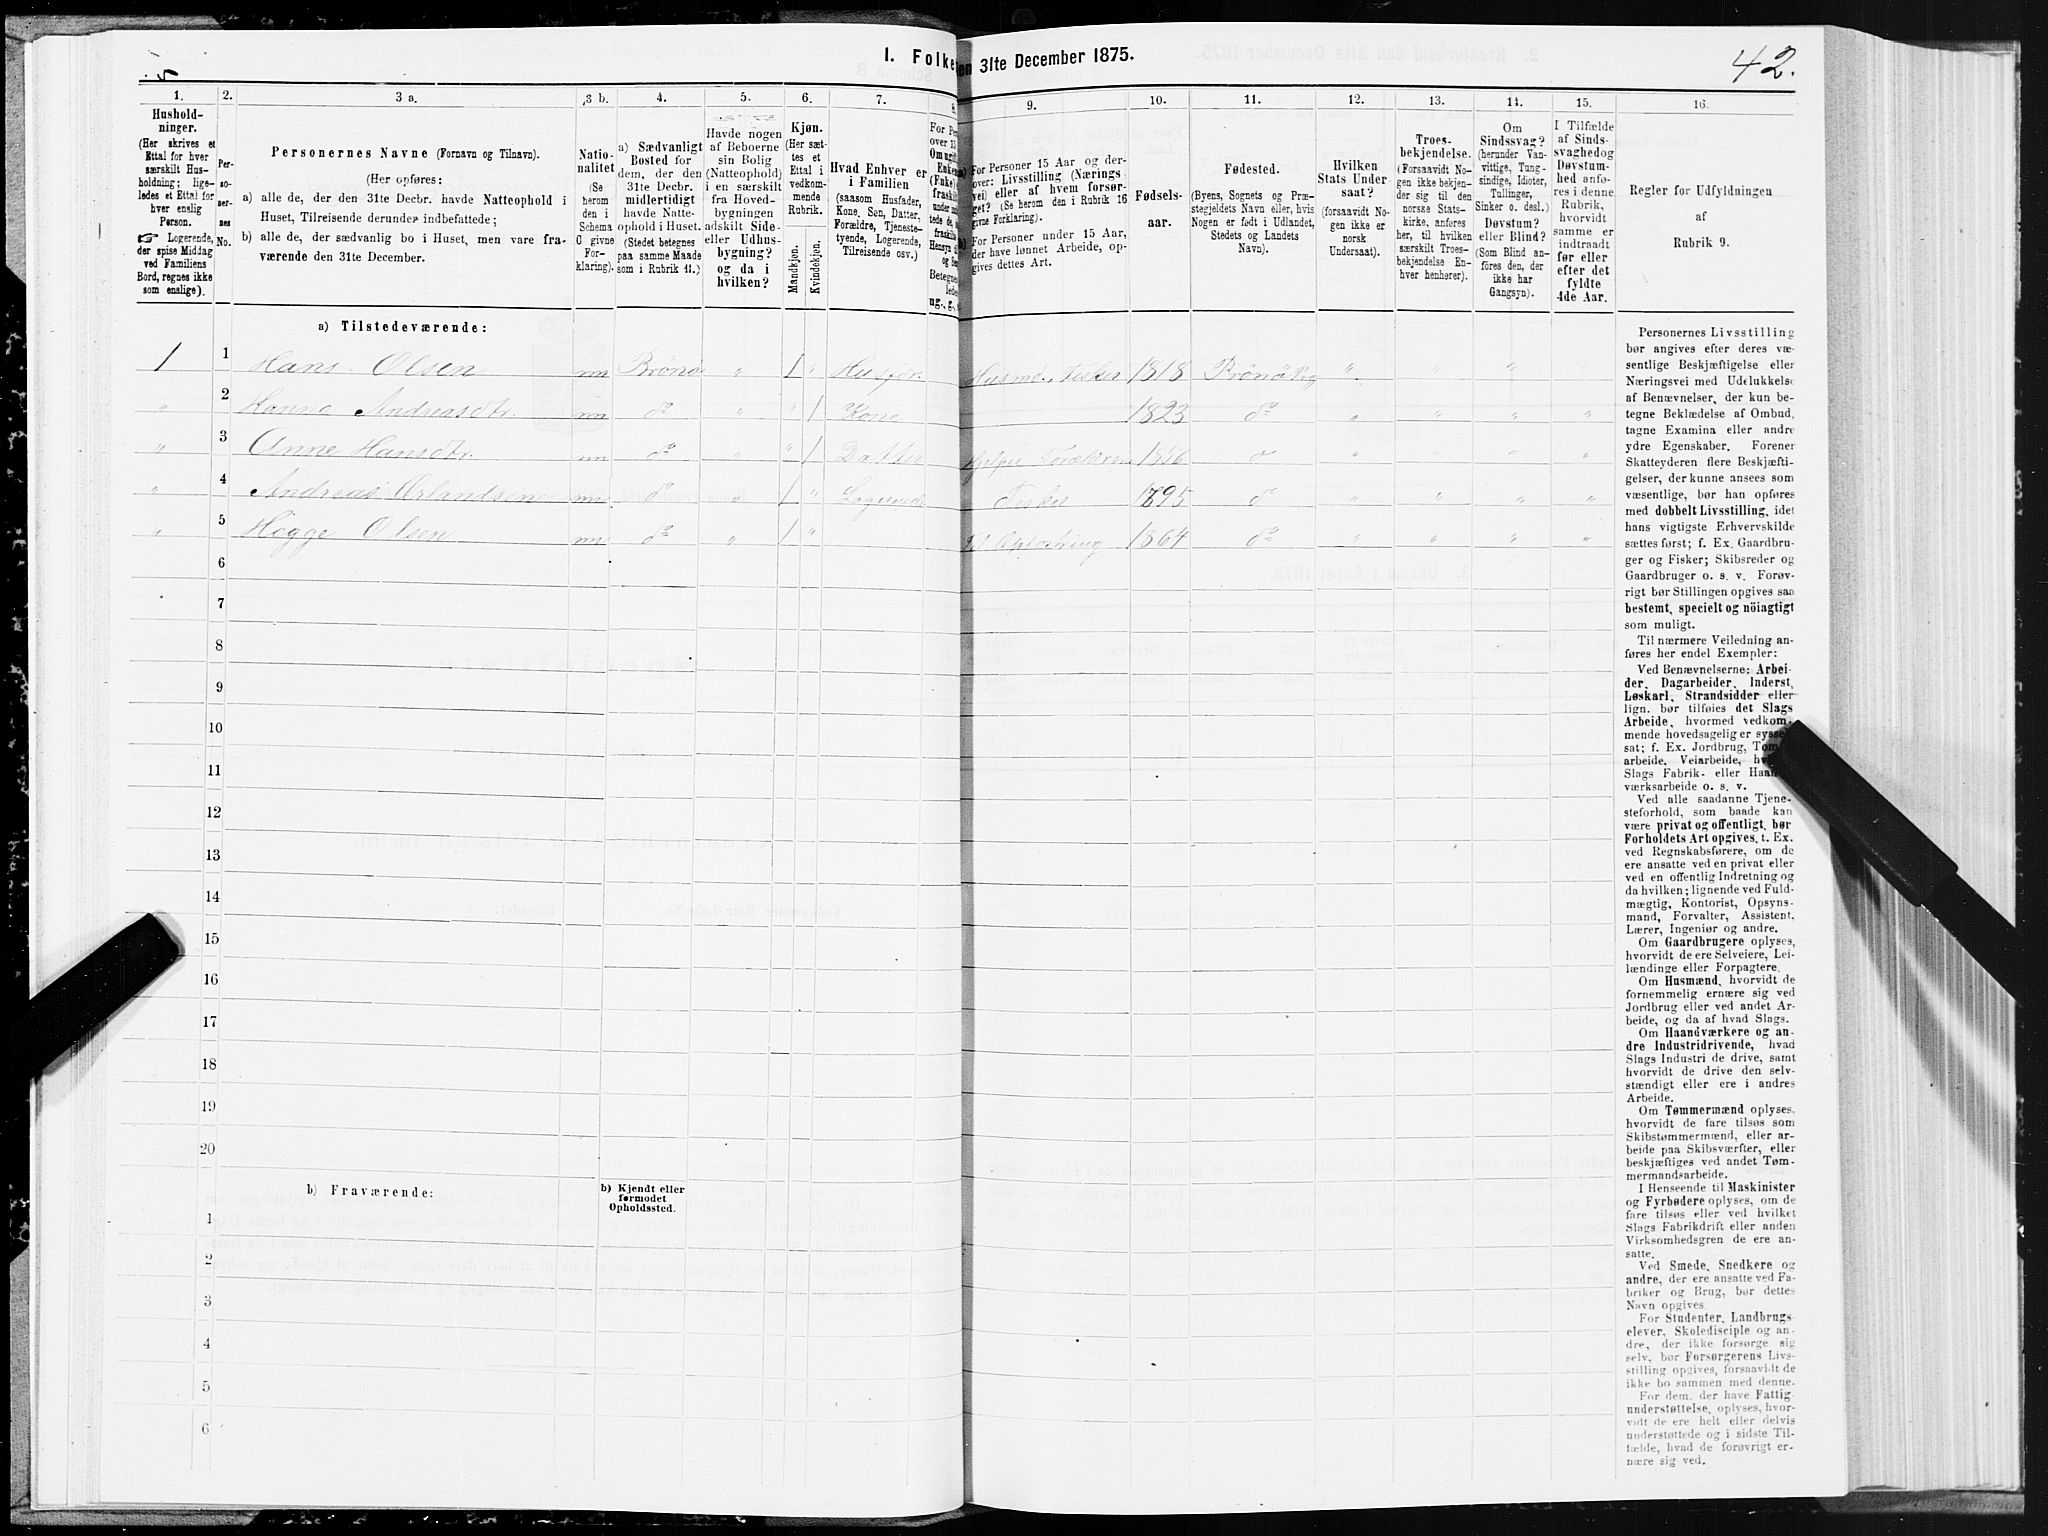 I. Folke en 31te December 1875.
42.
1.
2.
3 a.
3 b.
4.
5.
6.
7.
8
9.
10.
11.
12.
13.
14.
15.
16.
Hushold-
ninger.
(Her skrives et
Ettal for hver
særskilt Hus-
holdning; lige-
ledes et Ettal for
hver enslig
Person.
☞ Logerende,
der spise Middag
ved Familiens
Bord, regnes ikke
som enslige).
Per-
so-
ner-
nes
No.
Personernes Navne (Fornavn og Tilnavn).
(Her opføres:
a) alle de, der den 31te Decbr. havde Natteophold i
Huset, Tilreisende derunder indbefattede;
b) alle de, der sædvanlig bo i Huset, men vare fra-
værende den 31te December.
Natio-
nalitet
(Se
herom
den i
Schema
C givne
For-
klaring).
a) Sædvanligt
Bosted for
dem, der den
31te Decbr.
midlertidigt
havde Natte-
ophold i Huset.
(Stedet betegnes
paa samme Maade
som i Rubrik 11.)
Havde nogen
af Beboerne
sin Bolig
(Natteophold)
i en særskilt
fra Hoved-
bygningen
adskilt Side-
eller Udhus-
bygning?
og da i
hvilken?
Kjøn.
(Her sæt-
tes et
Ettal i
vedkom-
mende
Rubrik.
Mandkjøn.
Kvindekjøn.
Hvad Enhver er
i Familien
(saasom Husfader,
Kone, Søn, Datter,
Forældre, Tjeneste-
tyende, Logerende,
Tilreisende osv.)
For Personer 15 Aar og der-
over: Livsstilling (Nærings-
vei) eller af hvem forsør-
get? (Se herom i Rubrik 16
givne Forklaring).
For Personer under 15 Aar,
der have lønnet Arbeide, op-
gives dettes Art.
Fødsels-
aar.
Fødested.
(Byens, Sognets og Præ-
stegjeldets Navn eller, hvis
Nogen er født i Udlandet,
Stedets og Landets
Navn).
Hvilken
Stats Under
saat?
(forsaavidt No-
gen ikke er
norsk
Undersaat).
Troes-
bekjendelse.
(Forsaavidt No-
gen ikke bekjen-
der sig til den
norske Stats-
kirke, anføres
her, til hvilken
særskilt Troes-
bekjendelse En-
hver henhører).
Om
Sindssvag?
(herunder Van-
vittige, Tung-
sindige, Idioter,
Tullinger,
Sinker o. desl.)
Døvstum?
eller Blind?
(Som Blind an-
føres den, der
ikke har
Gangsyn).
I Tilfælde
af Sinds-
svaghed og
Døvstum-
hed anfø-
res i denne
Rubrik,
hvorvidt
samme er
indtraadt
før eller
efter det
fyldte
4de Aar.
Regler for Udfyldningen
af
Rubrik 9.
a) Tilstedeværende:
1 1 Hans Olsen nn Brönö " 1 " Husfar. Husmd. Fisker 1818 Brönö Prg " " " "
" 2 Hanna Andreasdtr. nn do " " 1 Kone 1823 do " " " "
" 3 Anne Hansdtr. nn do " 1 Datter Hjelper Forældrene 1856 do " " " "
" 4 Andreas Orlandsen nn do " 1 " Logerende Fisker 1895 do " " " "
" 5 Hogge Olsen nn do " 1 " Til Opfostring 1864 do " " " "
6
7
8
9
10
11
12
13
14
15
16
17
18
19
20
b) Fraværende:
b) Kjendt eller
formodet
Opholdssted.
1
2
3
4
5
6
Personernes Livsstilling
bør angives efter deres væ-
sentlige Beskjæftigelse eller
Næringsvei med Udelukkelse
af Benævnelser, der kun be-
tegne Beklædelse af Ombud,
tagne Examina eller andre
ydre Egenskaber. Forener
Skatteyderen flere Beskjæfti-
gelser, der kunne ansees som
væsentlige, bør han opføres
med dobbelt Livsstilling, idet
hans vigtigste Erhvervskilde
sættes først; f. Ex. Gaardbru-
ger og Fisker; Skibsreder og
Gaardbruger o. s. v. Forøv-
rigt bør Stillingen opgives saa
bestemt, specielt og nöiagtigt
som muligt.
Til nærmere Veiledning an-
føres her endel Exempler:
Ved Benævnelserne: Arbei-
der, Dagarbeider, Inderst,
Løskarl, Strandsidder eller
lign. bør tilføies det Slags
Arbeide, hvormed vedkom-
mende hovedsagelig er sysse
sat; f. Ex. Jordbrug, Tøm
arbeide, Veiarbeide, hv
Slags Fabrik- eller Haan
værksarbeide o. s. v.
Ved alle saadanne Tjene-
steforhold, som baade kan
være privat og offentligt, bør
Forholdets Art opgives, t. Ex.
ved Regnskabsførere, om de
ere ansatte ved en privat eller
ved en offentlig Indretning og
da hvilken; lignende ved Fuld-
mægtig, Kontorist, Opsyns-
mand, Forvalter, Assistent,
Lærer, Ingeniør og andre.
Om Gaardbrugere oplyses,
hvorvidt de ere Selveiere, Lei-
lændinge eller Forpagtere.
Om Husmænd, hvorvidt de
fornemmelig ernære sig ved
Jordbrug eller ved andet Ar-
beide, og da af hvad Slags.
Om Haandværkere og an-
dre Industridrivende, hvad
Slags Industri de drive, samt
hvorvidt de drive den selv-
stændigt eller ere i andres
Arbeide.
Om Tømmermænd oplyses,
hvorvidt de fare tilsøs som
Skibstømmermænd, eller ar-
beide paa Skibsværfter, eller
beskjæftiges ved andet Tøm-
mermandsarbeide.
I Henseende til Maskinister
og Fyrbødere oplyses, om de
fare tilsøs eller ved hvilket
Slags Fabrikdrift eller anden
Virksomhedsgren de ere an-
satte.
Ved Smede, Snedkere og
andre, der ere ansatte ved Fa-
briker og Brug, bør dettes
Navn opgives.
For Studenter, Landbrugs-
elever, Skoledisciple og an-
dre, der ikke forsørge sig
selv, bør Forsørgerens Livs-
stilling opgives, forsaavidt de
ikke bo sammen med denne.
For dem, der have Fattig-
understøttelse, oplyses, hvor-
vidt de ere helt eller delvis
understøttede og i sidste Til-
fælde, hvad de forøvrigt er-
nære sig ved.